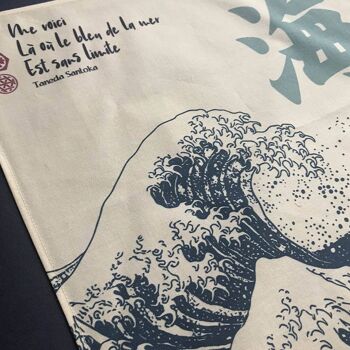 Me voici
Là où le bleu de la mer
Est sans limite
Taneda Santoka